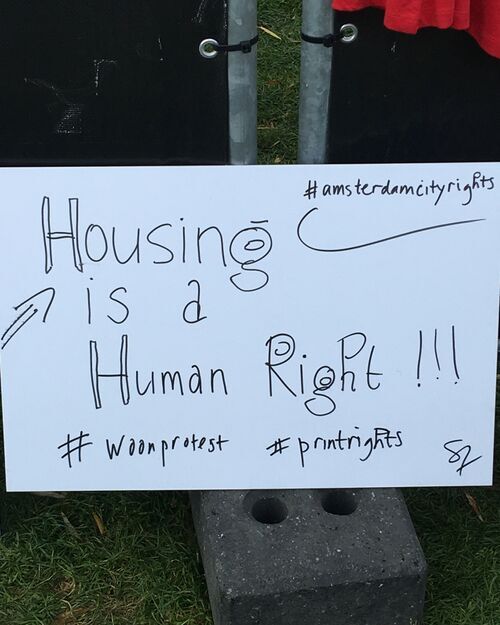 #amsterdamcityrights
Housing
is a
Human Right !!!
#woonprotest #printrights